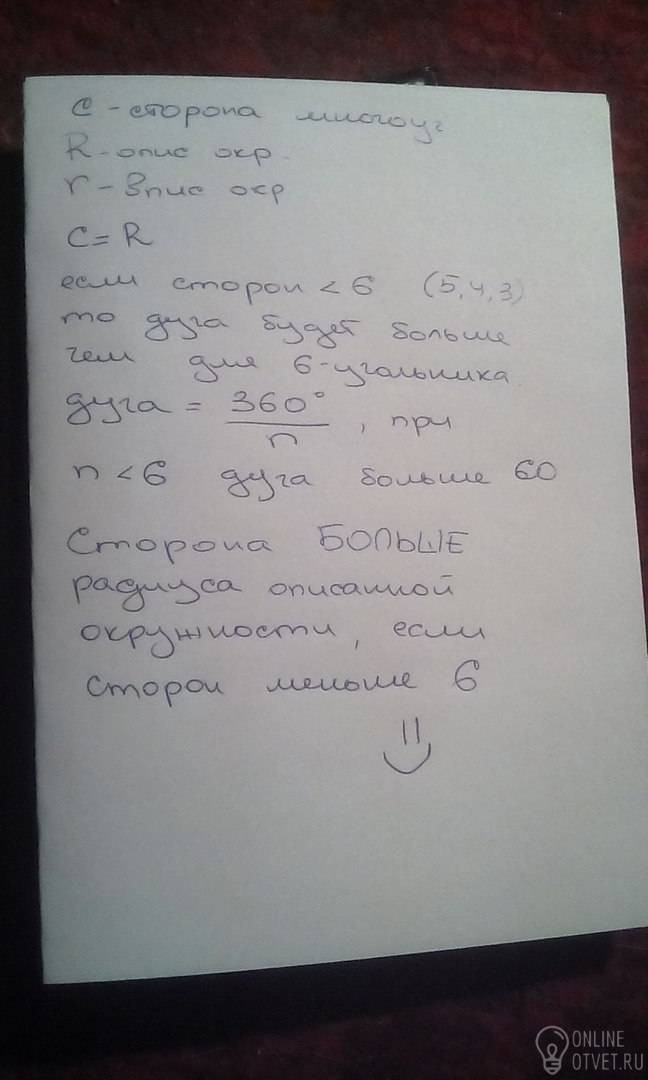 c - сторона многоуг
R - опис окр.
r - впис окр
C = R
если сторон < 6 (5,4,3)
то дуга будет больше
чем для 6-угольника.
дуга = 360°/n, при
n < 6 дуга больше 60
Сторона БОЛЬШЕ
радиуса описанной
окружности, если
сторон меньше 6
ONLINE
OTVET.RU